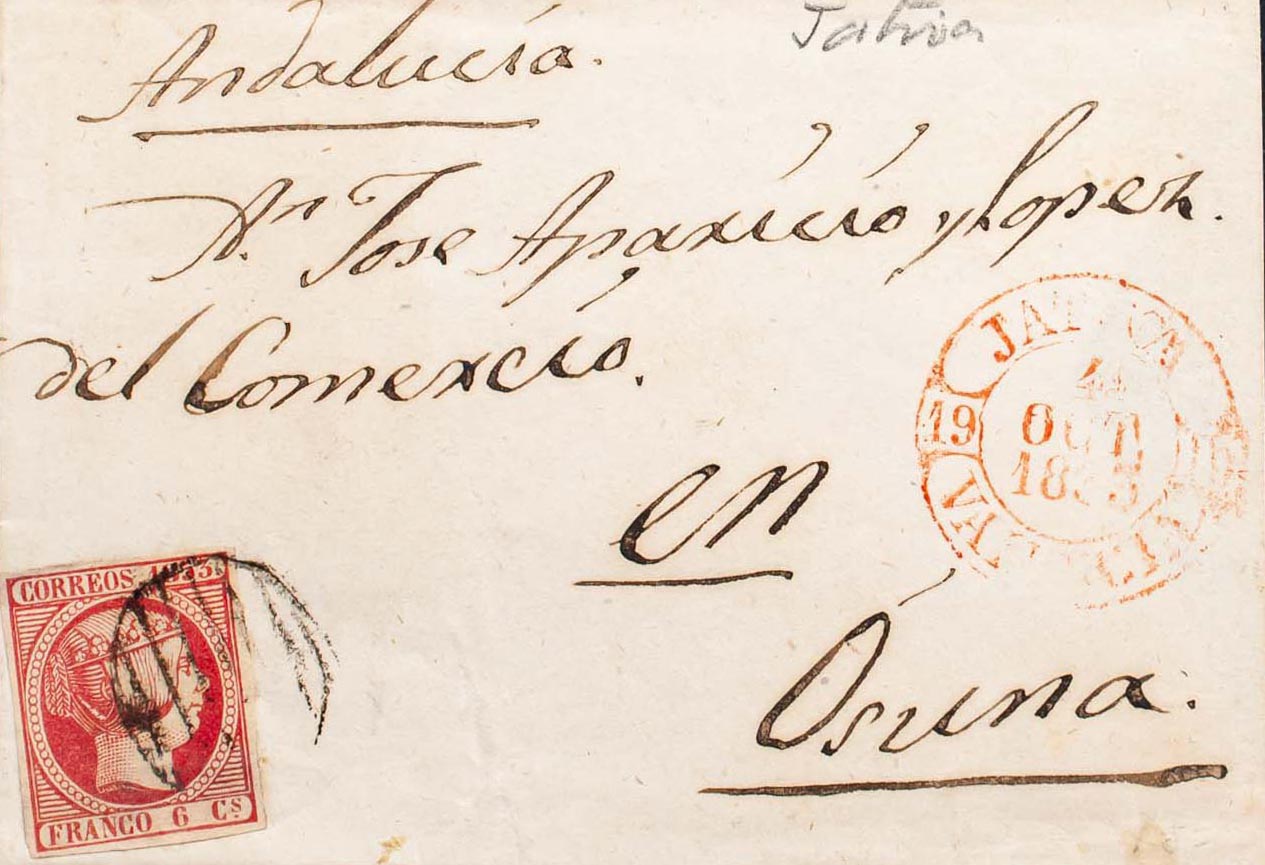 Jativa
Andalucía.
A.n Jose Aparicio y Lopez.
del Comercio.
en
Osuna.
JATIVA
4
OCT
1853
19
VALENCIA
CORREOS 1853
FRANCO 6 Cs